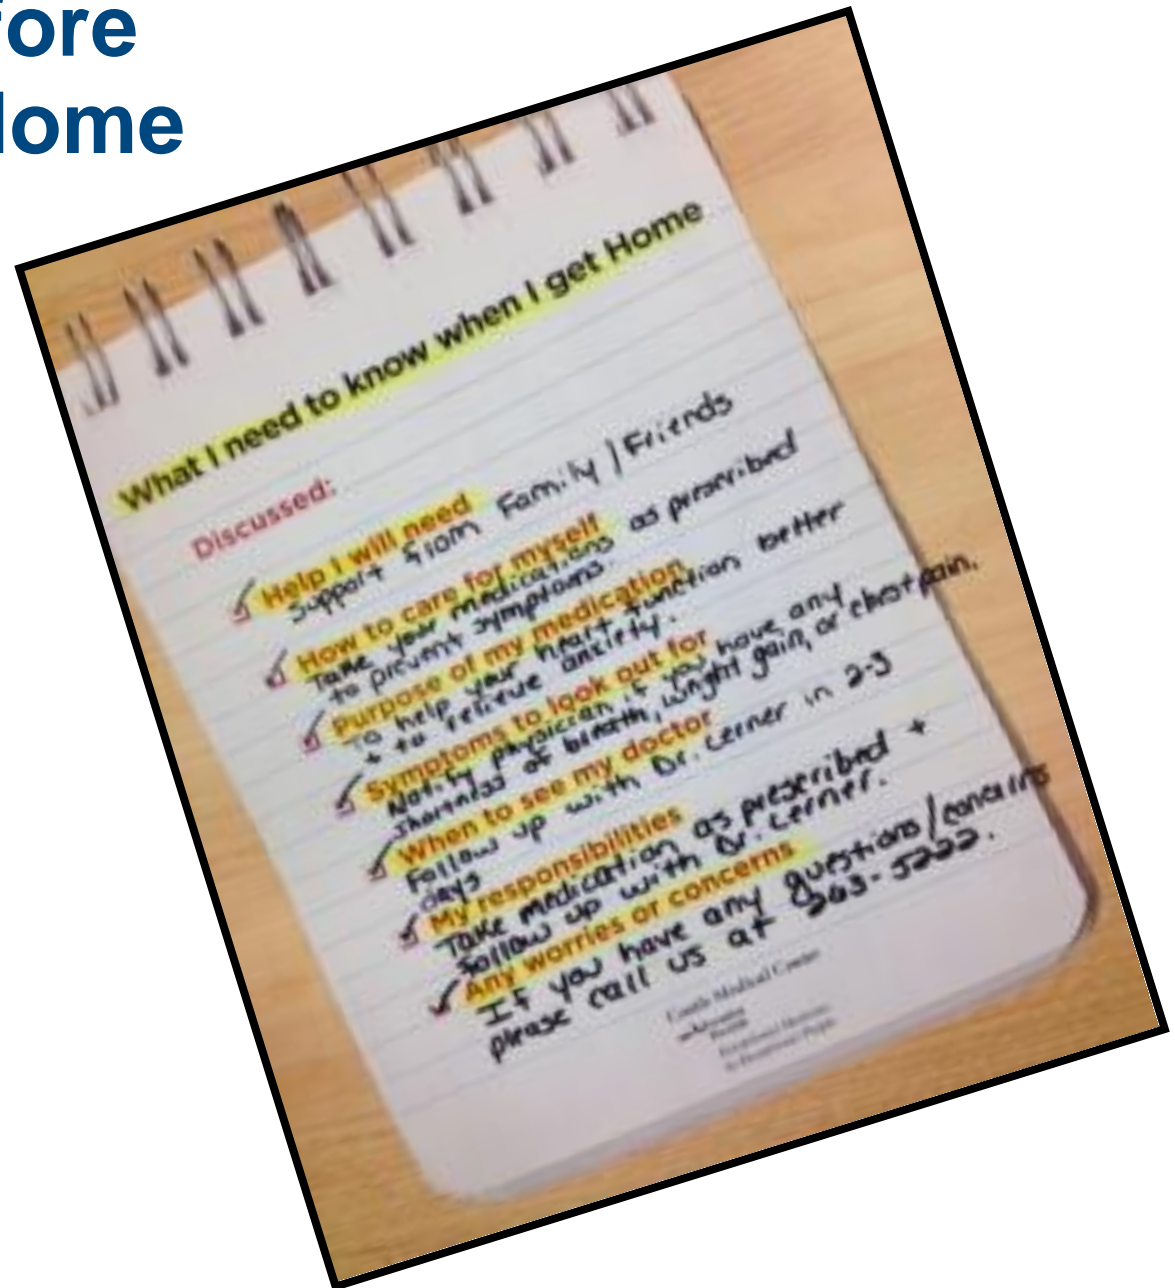 fore
Home
What I need to know when I get Home
Discussed:
Help I will need
Support from Family / Friends
How to care for myself
Take your medications as prescribed
to prevent symptoms.
Purpose of my medication
To help your heart function better
+ to relieve anxiety.
Symptoms to look out for
Notify physician if you have any
shortness of breath, weight gain, or chest pain.
When to see my doctor
Follow up with Dr. Lerner in 2-3
days
My responsibilities
Take medication as prescribed +
follow up with Dr. Lerner.
Any worries or concerns
If you have any questions/concerns
please call us at 263-5222.
Castle Medical Center
Adventist
Health